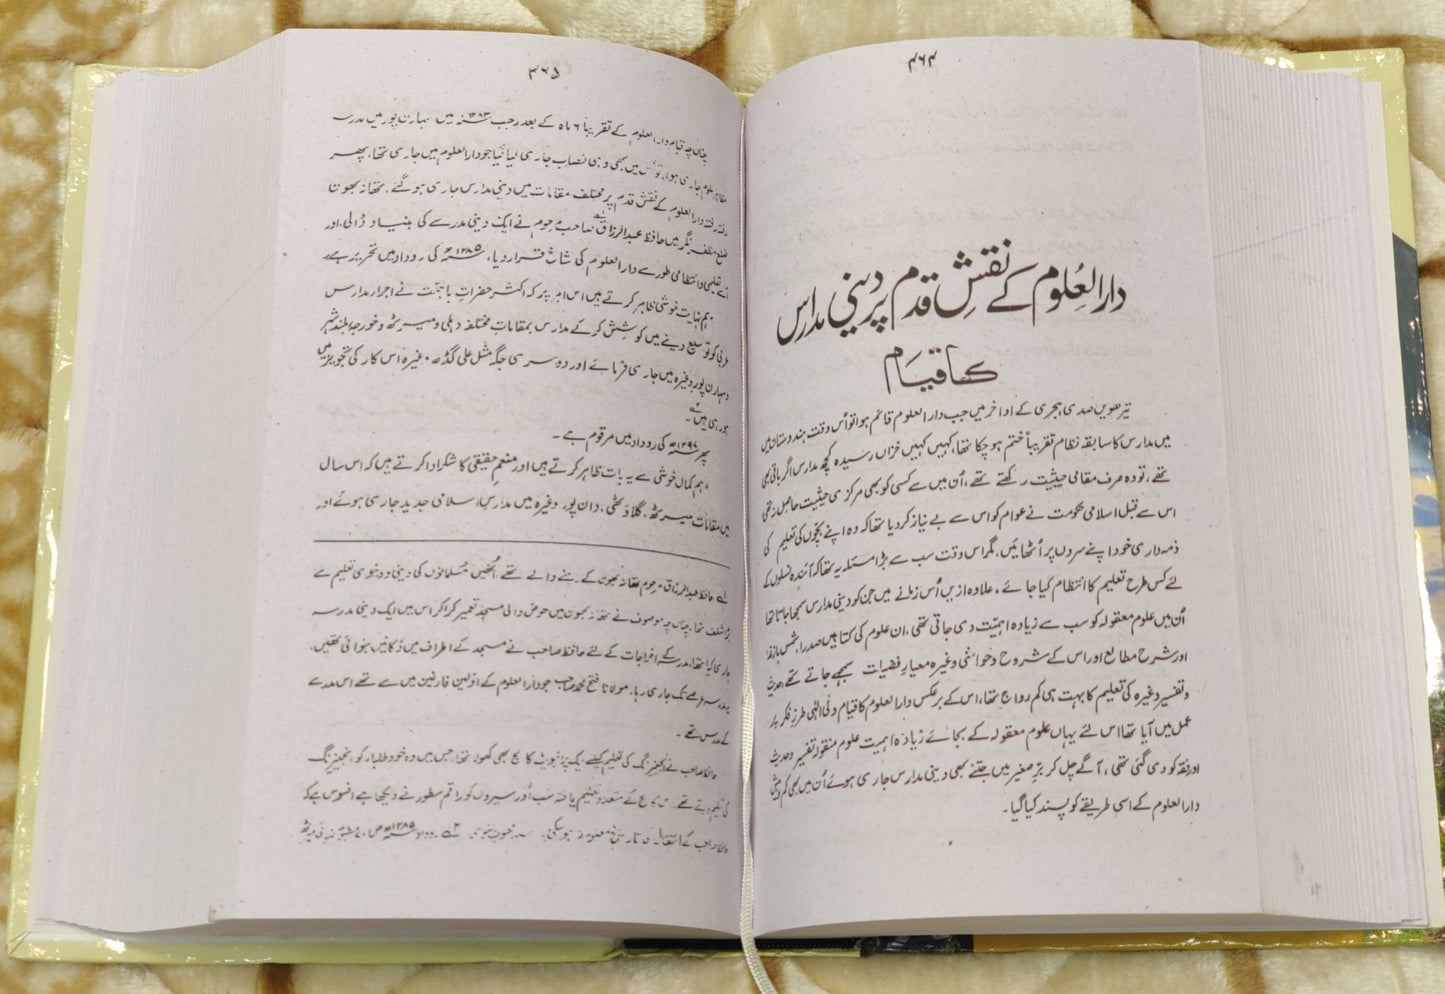 ۴۶۴
دارالعُلوم کے نقشِ قدم پر دینی مدارس
کا قیام
تیرھویں صدی ہجری کے اواخر میں جب دارالعلوم قائم ہوا تو اُس وقت ہندوستان میں
میں مدارس کا سابقہ نظام تقریباً ختم ہو چکا تھا، کہیں کہیں خزاں رسیدہ کچھ مدارس اگر باقی بھی
تھے، تو وہ صرف مقامی حیثیت رکھتے تھے، اُن میں سے کسی کو بھی مرکزی حیثیت حاصل نہ تھی
اس سے قبل اسلامی حکومت نے عوام کو اس سے بے نیاز کر دیا تھا کہ وہ اپنے بچوں کی تعلیم کی
ذمہ داری خود اپنے سروں پر اُٹھائیں، مگر اس وقت سب سے بڑا مسئلہ یہ تھا کہ آئندہ نسلوں کے
لئے کس طرح تعلیم کا انتظام کیا جائے، علاوہ ازیں اُس زمانے میں جن کو دینی مدارس سمجھا جاتا تھا
اُن میں علوم معقولہ کو سب سے زیادہ اہمیّت دی جاتی تھی، ان علوم کی کتابیں صدرا، شمس بازغہ
اور شرح مطالع اور اس کے شروح و حواشی وغیرہ معیارِ فضیلت سمجھے جاتے تھے، حدیث
و تفسیر وغیرہ کی تعلیم کا بہت ہی کم رواج تھا، اس کے برعکس دارالعلوم کا قیام ولی اللہی طرزِ فکر پر
عمل میں آیا تھا اس لئے یہاں علوم معقولہ کے بجائے زیادہ اہمیت علوم منقولہ تفسیر و حدیث
اور فقہ کو دی گئی تھی، آگے چل کر برِّ صغیر میں جتنے بھی دینی مدارس جاری ہوئے اُن میں بھی کم و بیش
دارالعلوم کے اسی طریقے کو پسند کیا گیا۔
۴۶۵
چناں چہ قیام دارالعلوم کے تقریباً ۶ ماہ کے بعد رجب ۱۲۸۳ھ میں سہارن پور میں مدرسہ
مظاہر علوم جاری ہوا، تو اُس میں بھی وہی نصاب جاری کیا گیا جو دارالعلوم میں جاری تھا، پھر
رفتہ رفتہ دارالعلوم کے نقش قدم پر مختلف مقامات میں دینی مدارس جاری ہو گئے، تھانہ بھون
ضلع مظفر نگر میں حافظ عبدالرزاق صاحب مرحوم نے ایک دینی مدرسے کی بنیاد ڈالی، اور
اُسے تعلیمی و انتظامی طور سے دارالعلوم کی شاخ قرار دیا، ۱۲۸۵ھ کی روداد میں تحریر ہے،
”ہم نہایت خوشی ظاہر کرتے ہیں اس امر پر کہ اکثر حضرات باہمّت نے اجراء مدارس
عربی کو توسیع دینے میں کوشش کر کے مدارس بمقامات مختلفہ دہلی و میرٹھ و خورجہ و بلند شہر
و سہارن پور وغیرہ میں جاری فرمائے اور دوسری جگہ مثل علی گڈھ وغیرہ اس کار کی تجویزیں
ہو رہی ہیں۔
پھر ۱۲۹۷ھ کی روداد میں مرقوم ہے۔
”ہم کمال خوشی سے یہ بات ظاہر کرتے ہیں اور منعمِ حقیقی کا شکر ادا کرتے ہیں کہ اس سال
میں مقامات میرٹھ، گلاؤٹھی، دان پور وغیرہ میں مدارس اسلامی جدید جاری ہوئے اور
لے حافظ عبدالرزاق مرحوم تھانہ بھون کے رہنے والے تھے، اُنھیں مسلمانوں کی دینی و دنیوی تعلیم سے
بڑا شغف تھا، چناں چہ موصوف نے تھانہ بھون میں حوض والی مسجد تعمیر کرا کر اس میں ایک دینی مدرسہ
جاری کیا تھا، مدرسہ کے اخراجات کے لئے حافظ صاحب نے مسجد کے اطراف میں دُکانیں بنوائی تھیں،
یہ مدرسہ عرصے تک جاری رہا۔ مولانا فتح محمد صاحب جو دارالعلوم کے اوّلین فارغین میں سے تھے اس مدرسے
کے مدرس تھے۔
حافظ صاحب نے انجینئرنگ کی تعلیم کیلئے ایک پرائیویٹ کالج بھی کھولا تھا، جس میں وہ خود طلبار کو انجینئرنگ
کی تعلیم دیتے تھے، اس کالج کے متعدد تعلیم یافتہ سب اور سیروں کو راقم سطور نے دیکھا ہے افسوس ہے کہ
حافظ صاحب کے انتقال کی تاریخ معلوم نہ ہو سکی۔ سید محبوب رضوی ۲ے روداد ۱۲۸۵ھ ص